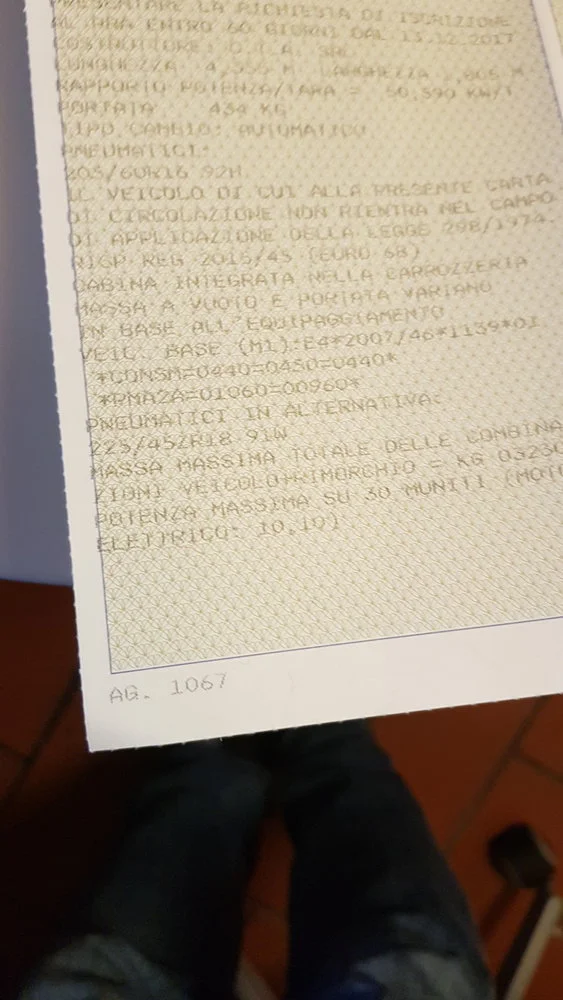 PRESENTARE LA RICHIESTA DI ISCRIZIONE
AL PRA ENTRO 60 GIORNI DAL 13.12.2017
COSTRUTTORE: D.I.A. SRL
LUNGHEZZA 4,355 M LARGHEZZA 1,805 M
RAPPORTO POTENZA/TARA = 50,590 KW/T
PORTATA 434 KG
TIPO CAMBIO: AUTOMATICO
PNEUMATICI:
205/60R16 92H
IL VEICOLO DI CUI ALLA PRESENTE CARTA
DI CIRCOLAZIONE NON RIENTRA NEL CAMPO
DI APPLICAZIONE DELLA LEGGE 298/1974.
RISP REG 2015/45 (EURO 6B)
CABINA INTEGRATA NELLA CARROZZERIA
MASSA A VUOTO E PORTATA VARIANO
IN BASE ALL'EQUIPAGGIAMENTO
VEIC. BASE (M1):E4*2007/46*1139*01
*CONSM=0440=0450=0440*
*PMA2A=01060=00960*
PNEUMATICI IN ALTERNATIVA:
225/45ZR18 91W
MASSA MASSIMA TOTALE DELLE COMBINA
ZIONI VEICOLO+RIMORCHIO = KG 03230
POTENZA MASSIMA SU 30 MUNITI (MOTO
ELETTRICO: 10,10)
AG. 1067